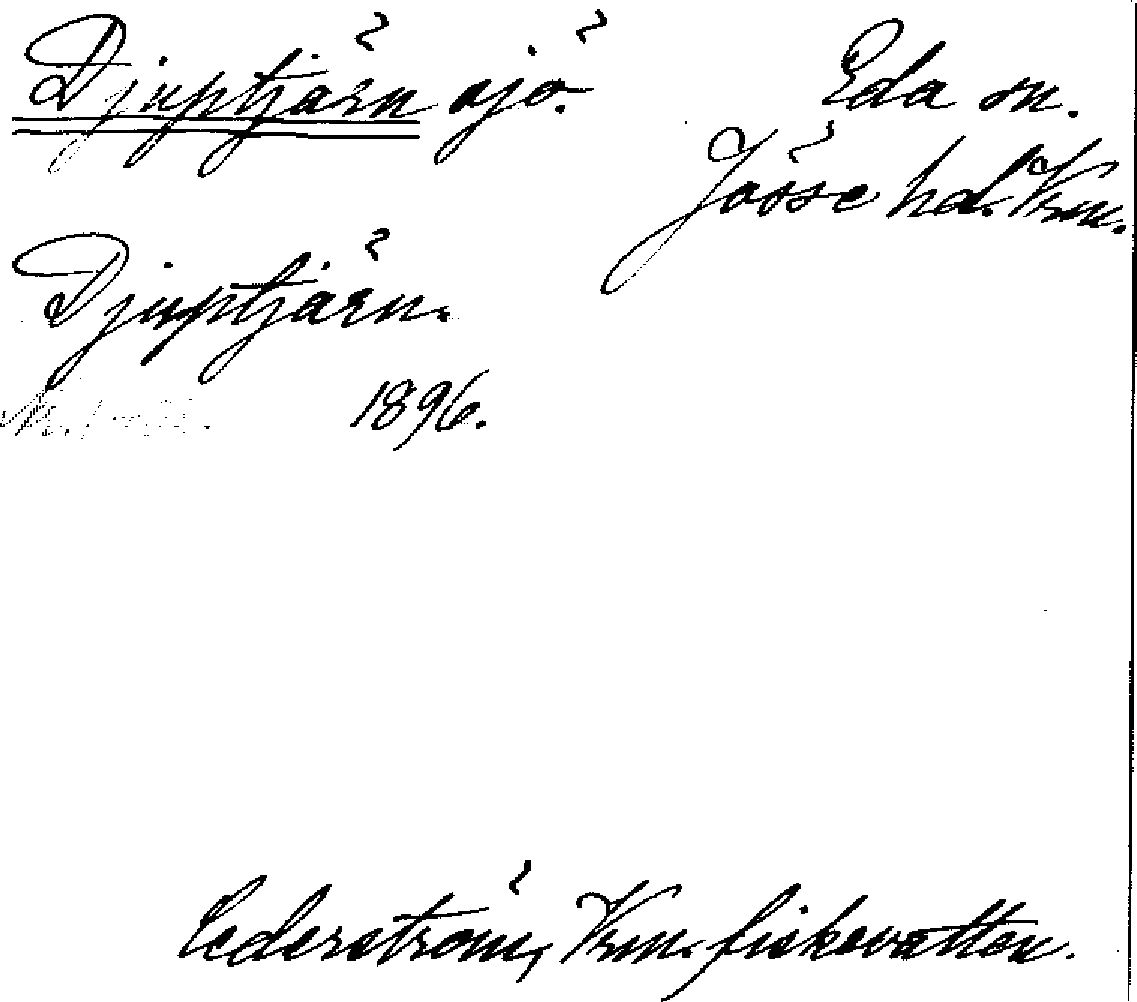 Djuptjärn sjö.
Eda sn.
Jösse hd. Vrm.
Djuptjärn.
1896.
Cederström, Vrm. fiskevatten.